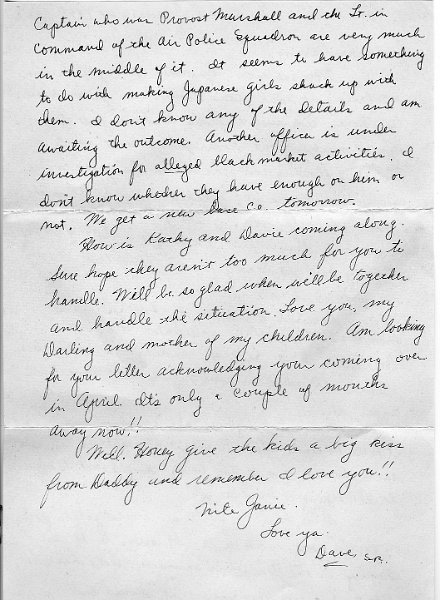 Captain who was Provost Marshall and the Lt. in
Command of the Air Police Squadron are very much
in the middle of it. It seems to have something
to do with making Japanese girls shack up with
them. I don't know any of the details and am
awaiting the outcome. Another officer is under
investigation for alleged black market activities. I
don't know whether they have enough on him or
not. We get a new base C.O. tomorrow.
How is Kathy and Davie coming along.
Sure hope they aren't too much for you to
handle. Will be so glad when we'll be together
and handle the situation. Love you, my
Darling and mother of my children. Am looking
for your letter acknowledging your coming over
in April. It's only a couple of months
away now!!
Well, Honey give the kids a big kiss
from Daddy and remember I love you!!
Nite Janie.
Love ya.
Dave, SR.